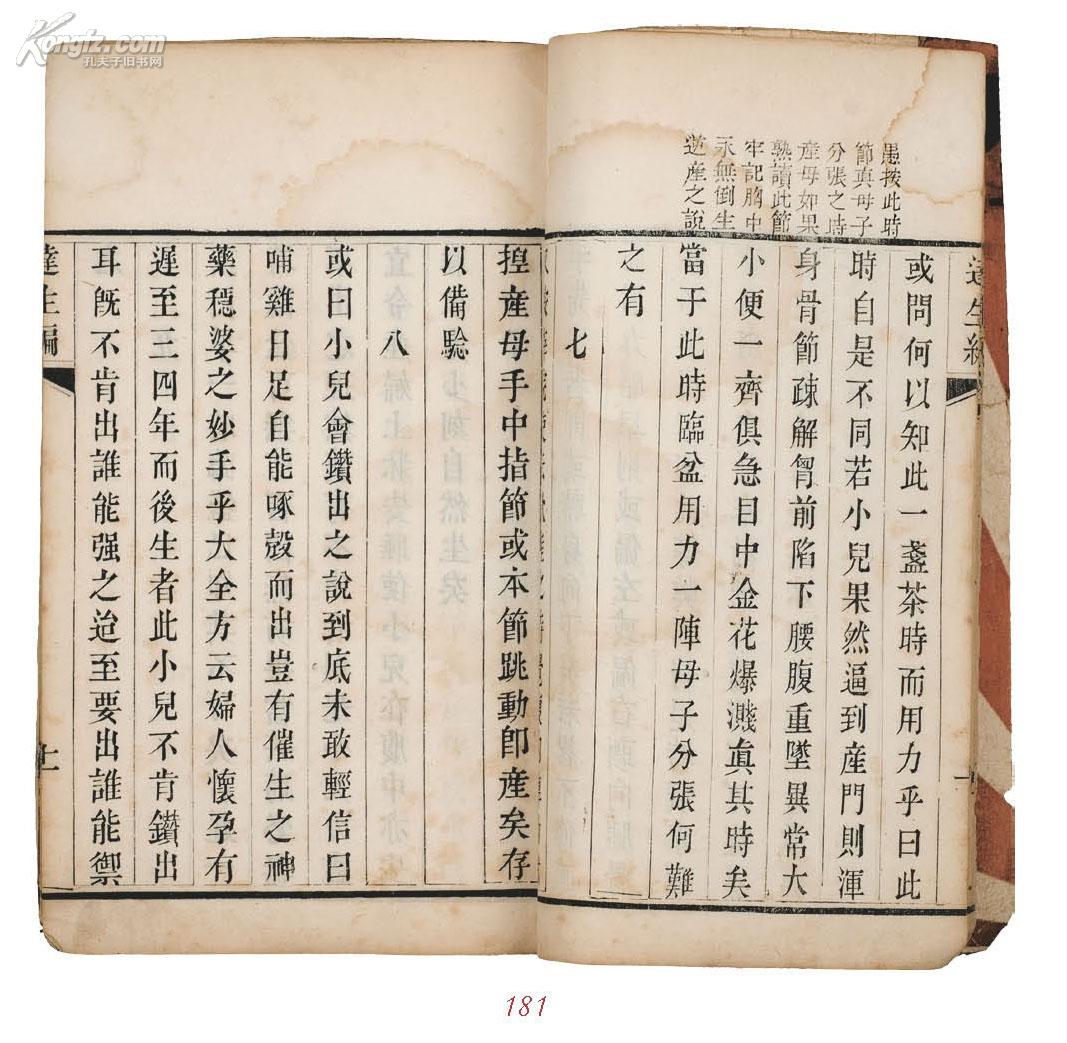 Kongfz.com
孔夫子旧书网
愚按此時
節真母子
分張之時
產母如果
熟讀此節
牢記胸中
永無倒生
逆產之說
達生編
或問何以知此一盞茶時而用力乎曰此
時自是不同若小兒果然逼到產門則渾
身骨節疎解胷前陷下腰腹重墜異常大
小便一齊俱急目中金花爆濺真其時矣
當于此時臨盆用力一陣母子分張何難
之有
七
揑產母手中指節或本節跳動卽產矣存
以備驗
八
或曰小兒會鑽出之說到底未敢輕信曰
哺雞日足自能啄殼而出豈有催生之神
藥穩婆之妙手乎大全方云婦人懷孕有
遲至三四年而後生者此小兒不肯鑽出
耳旣不肯出誰能强之迨至要出誰能禦
達生編
十一
181